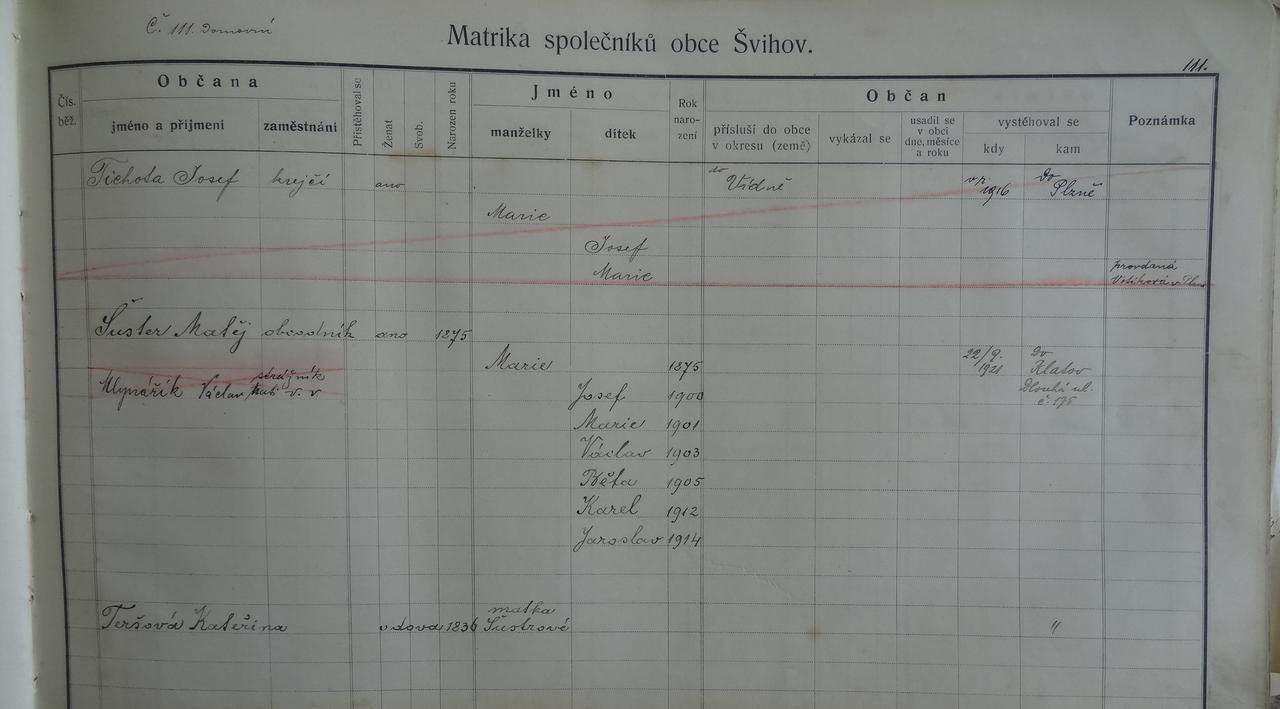 Č. 111. Domovní
Matrika společníků obce Švihov.
111.
Čís. běž.
Občana
jméno a přijmení
zaměstnání
Přistěhoval se
Ženat
Svob.
Narozen roku
Jméno
manželky
dítek
Rok naro- zení
Občan
přísluší do obce v okresu (země)
vykázal se
usadil se v obci dne, měsíce a roku
vystěhoval se
kdy
kam
Poznámka
Tichota Josef krejčí ano do Vídně v r. 1916 Do Plzně
Marie
Josef
Marie provdaná
Šuster Matěj obchodník ano 1875
Marie 1875 22/9. 1921 Do Klatov
Mlynářík Václav strážník v. v Josef 1900 Dlouhá ul. č. 175
Marie 1901
Václav 1903
Běta 1905
Karel 1912
Jaroslav 1914
Teršová Kateřina vdova 1836 matka Šustrové "